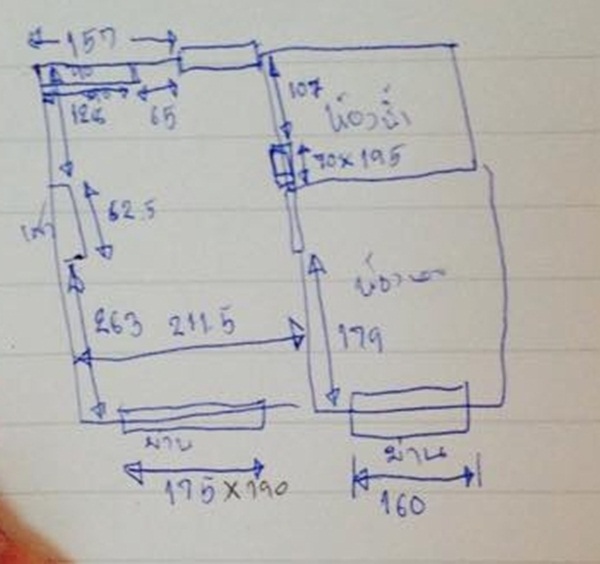 157
90
126
65
107
ห้องน้ำ
70x195
เสา
62.5
263
211.5
ห้องนอน
179
ม่าน
175 x 190
ม่าน
160